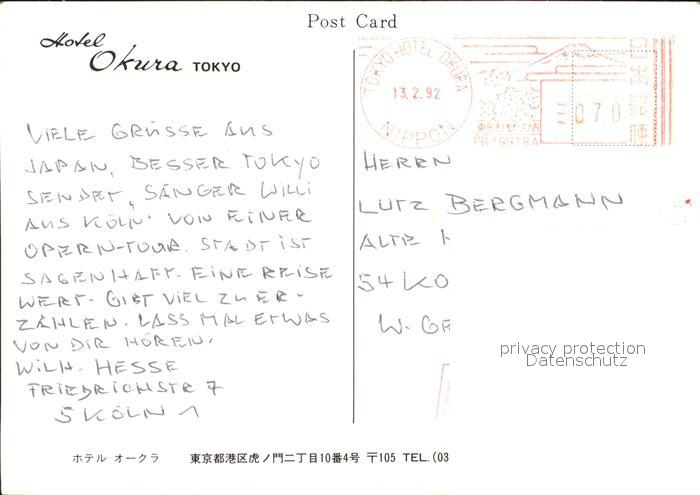 Post Card
Hotel
Okura TOKYO
TOKYO·HOTEL OKURA
13.2.92
NIPPON
070
VIELE GRÜSSE AUS
JAPAN, BESSER TOKYO
SENDET, SÄNGER WILLI
AUS KÖLN. VON EINER
OPERN-TOUR. STADT IST
SAGENHAFT. EINE REISE
WERT. GIBT VIEL ZU ER-
ZÄHLEN. LASS MAL ETWAS
VON DIR HÖREN.
WILH. HESSE
FRIEDRICHSTR 7
5 KÖLN 1
HERRN
LUTZ BERGMANN
ALTE
54 KO
W. GE
privacy protection
Datenschutz
ホテル オークラ 東京都港区虎ノ門二丁目10番4号 〒105 TEL.(03